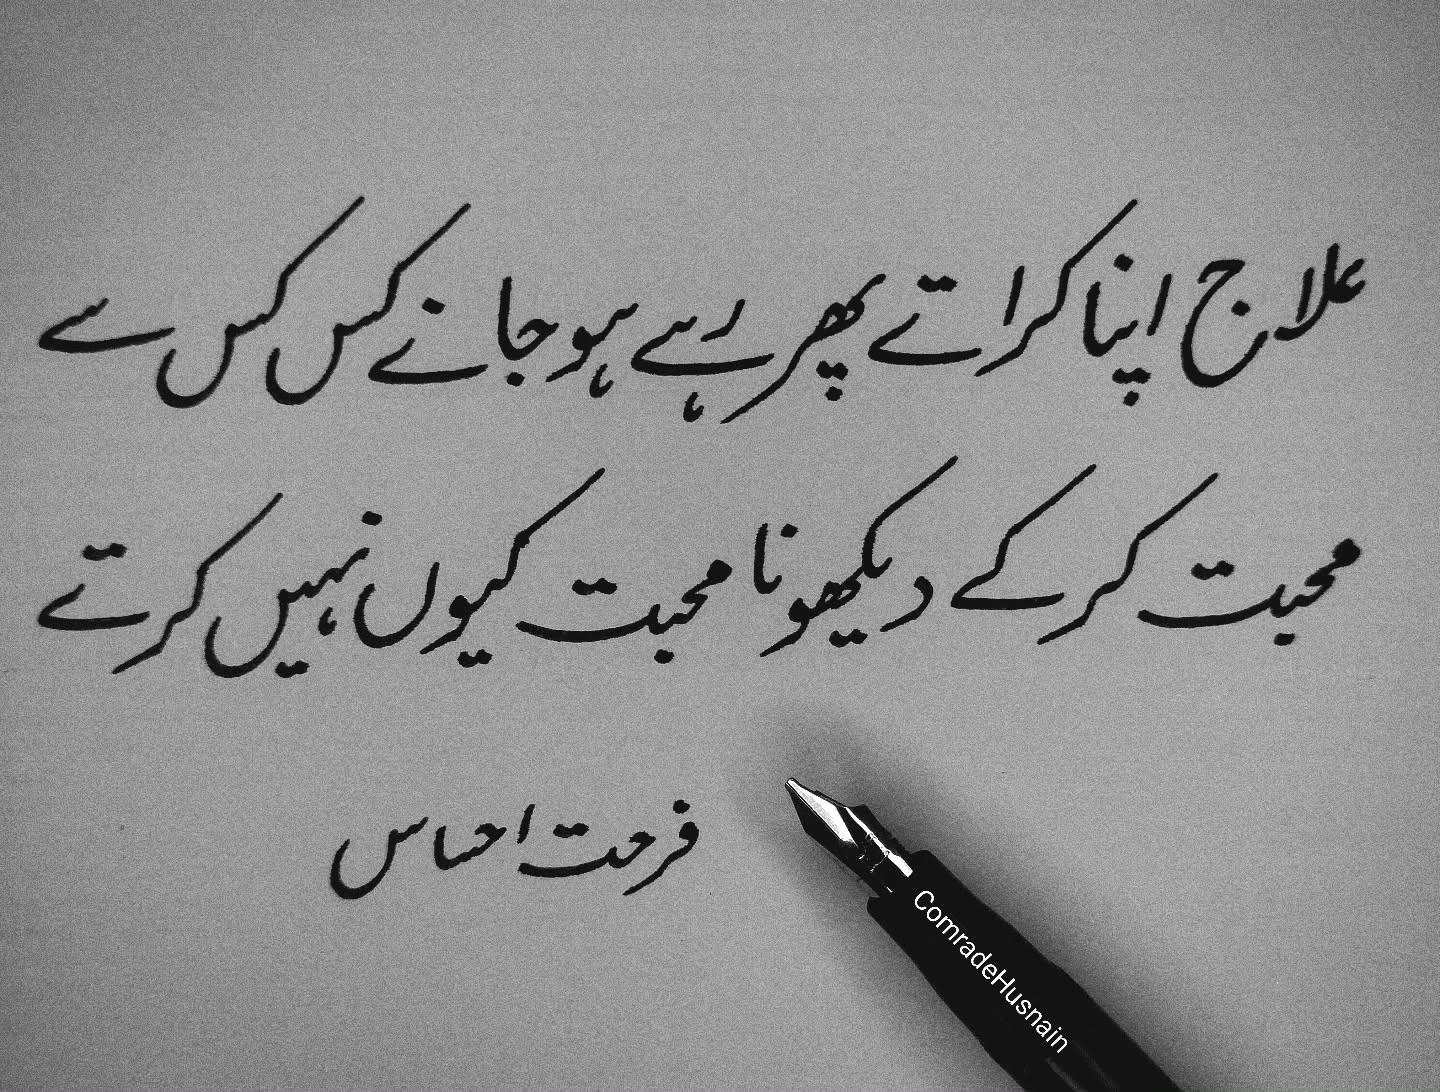 علاج اپنا کراتے پھر رہے ہو جانے کس کس سے
محبت کر کے دیکھو نا محبت کیوں نہیں کرتے
فرحت احساس
ComradeHusnain